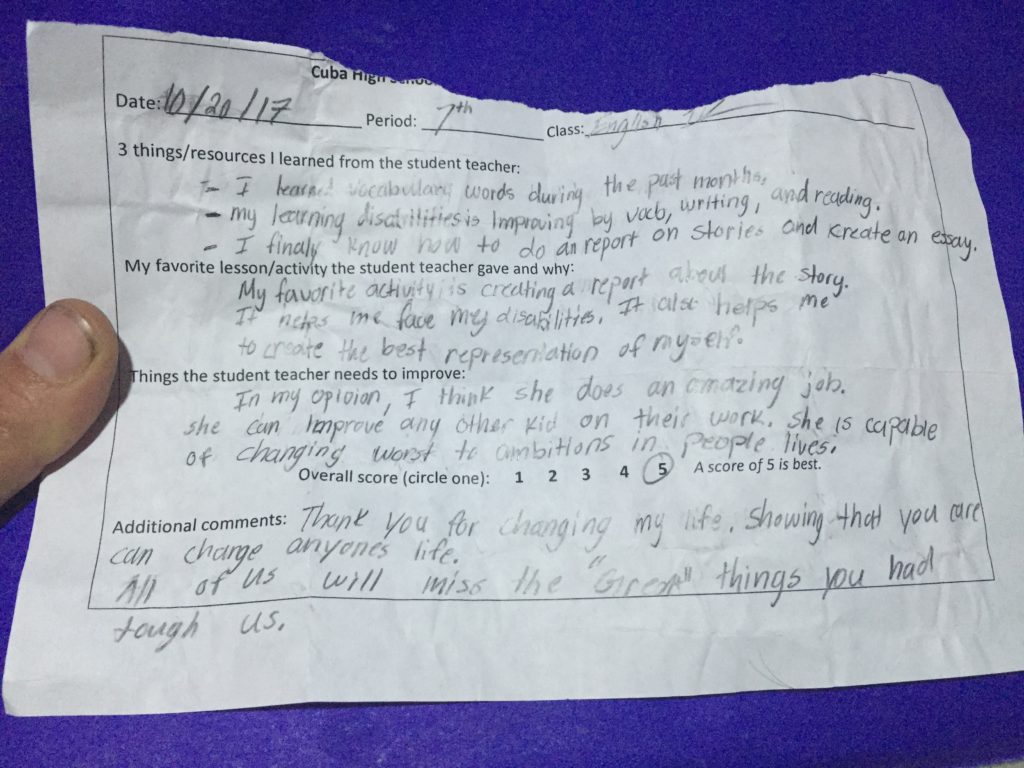 Cuba High School
Date: 10/20/17 Period: 7th Class: English
3 things/resources I learned from the student teacher:
- I learned vocabullary words during the past months,
- my learning disabilities is Improving by vocb, writing, and reading.
- I finaly know how to do an report on stories and kreate an essay.
My favorite lesson/activity the student teacher gave and why:
My favorite activity is creating a report about the story.
It helps me face my disabilities. It also helps me
to create the best representation of myself.
Things the student teacher needs to improve:
In my opioion, I think she does an amazing job.
she can Improve any other kid on their work. She is capable
of changing worst to ambitions in people lives.
Overall score (circle one): 1 2 3 4 5 A score of 5 is best.
Additional comments: Thank you for changing my life. Showing that you care
can change anyones life.
All of us will miss the "Great" things you had
tough us.